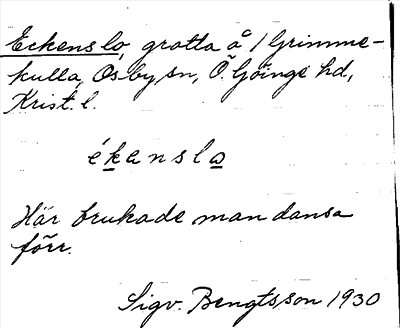 Eckenslo, grotta å 1 Grimme-
kulla, Osby sn, Ö. Göinge hd,
Krist. l.
ékenslo
Här brukade man dansa
förr.
Sigv. Bengtsson 1930